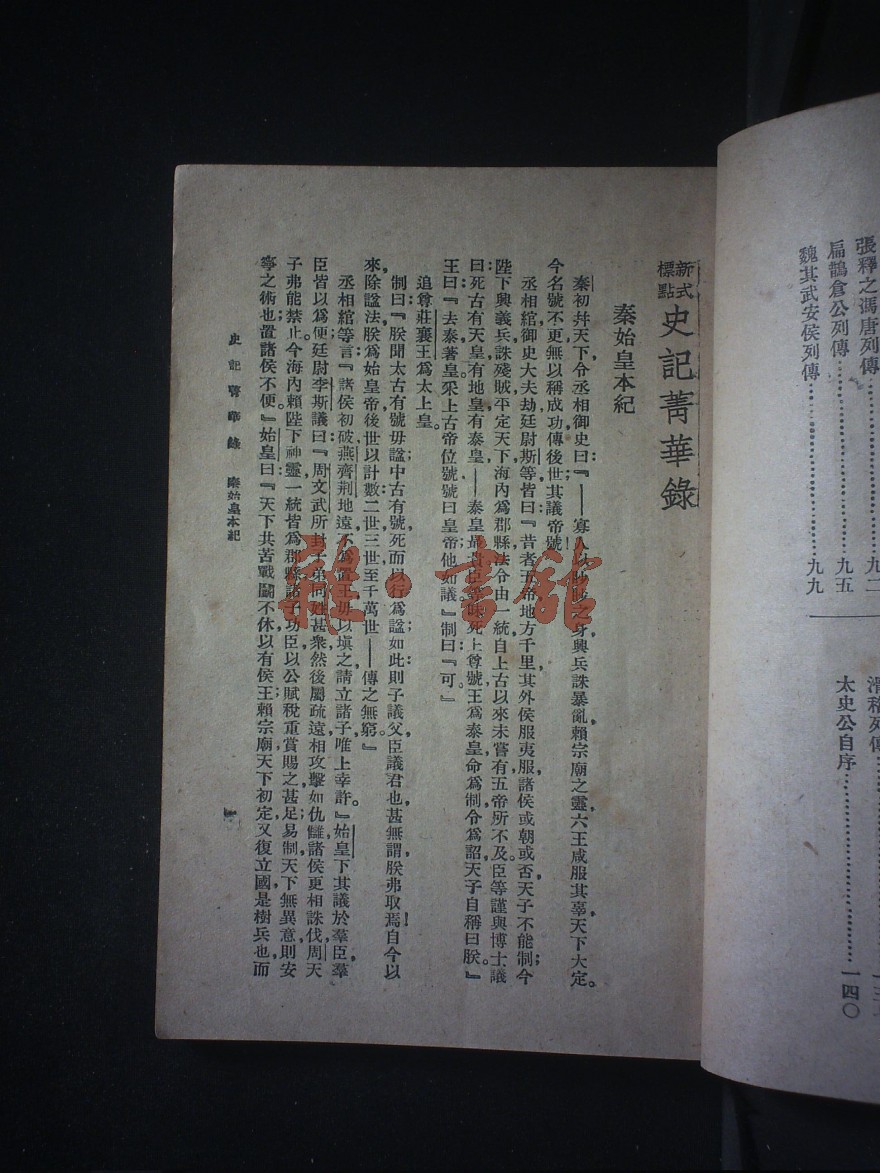 張釋之馮唐列傳……九二
扁鵲倉公列傳……九五
魏其武安侯列傳……九九
滑稽列傳
太史公自序……一四〇
新式標點 史記菁華錄
秦始皇本紀
秦初幷天下，令丞相御史曰：『——寡人以眇眇之身，興兵誅暴亂，賴宗廟之靈，六王咸服其辜，天下大定。
今名號不更，無以稱成功，傳後世；其議帝號！
丞相綰御史大夫劫廷尉斯等皆曰：『昔者五帝地方千里，其外侯服夷服，諸侯或朝或否，天子不能制；今
陛下興義兵，誅殘賊，平定天下，海內爲郡縣，法令由一統，自上古以來未嘗有，五帝所不及。臣等謹與博士議
曰：死古有天皇，有地皇，有泰皇——泰皇最貴。臣等昧死上尊號，王爲泰皇，命爲制，令爲詔，天子自稱曰朕。』
王曰：『去泰著皇，采上古帝位號，號曰皇帝；他如議。』制曰：『可。』
追尊莊襄王爲太上皇。
制曰：『朕聞太古有號毋諡；中古有號，死而以行爲諡；如此則子議父，臣議君也，甚無謂，朕弗取焉！自今以
來，除諡法，朕爲始皇帝，後世以計數，二世三世至千萬世——傳之無窮。』
丞相綰等言：『諸侯初破，燕齊荆地遠，不爲置王，毋以塡之；請立諸子，唯上幸許。』始皇下其議於羣臣，羣
臣皆以爲便；廷尉李斯議曰：『周文武所封子弟同姓甚衆，然後屬疏遠，相攻擊如仇讎，諸侯更相誅伐，周天
子弗能禁止；今海內賴陛下神靈一統，皆爲郡縣，諸子功臣以公賦稅重賞賜之，甚足易制，天下無異意，則安
寧之術也；置諸侯不便。』始皇曰：『天下共苦戰鬭不休，以有侯王；賴宗廟天下初定，又復立國，是樹兵也，而
史記菁華錄 秦始皇本紀
一
雅·書館